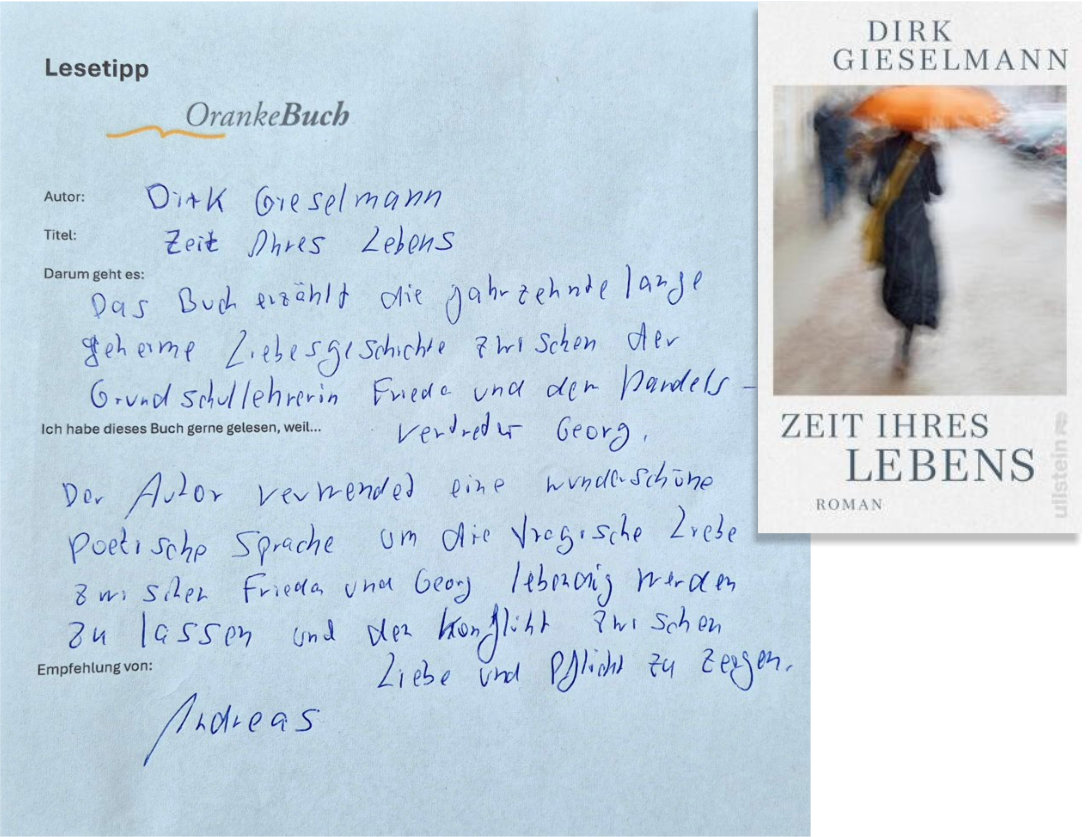 Lesetipp
OrankeBuch
Autor: Dirk Gieselmann
Titel: Zeit Ihres Lebens
Darum geht es:
Das Buch erzählt die jahrzehnte lange
geheime Liebesgeschichte zwischen der
Grundschullehrerin Frieda und dem Handels-
vertreter Georg.
Ich habe dieses Buch gerne gelesen, weil...
Der Autor verwendet eine wunderschöne
poetische Sprache um die tragische Liebe
zwischen Frieda und Georg lebendig werden
zu lassen und den Konflikt zwischen
Liebe und Pflicht zu zeigen.
Empfehlung von:
Andreas
DIRK
GIESELMANN
ZEIT IHRES
LEBENS
ROMAN
ullstein